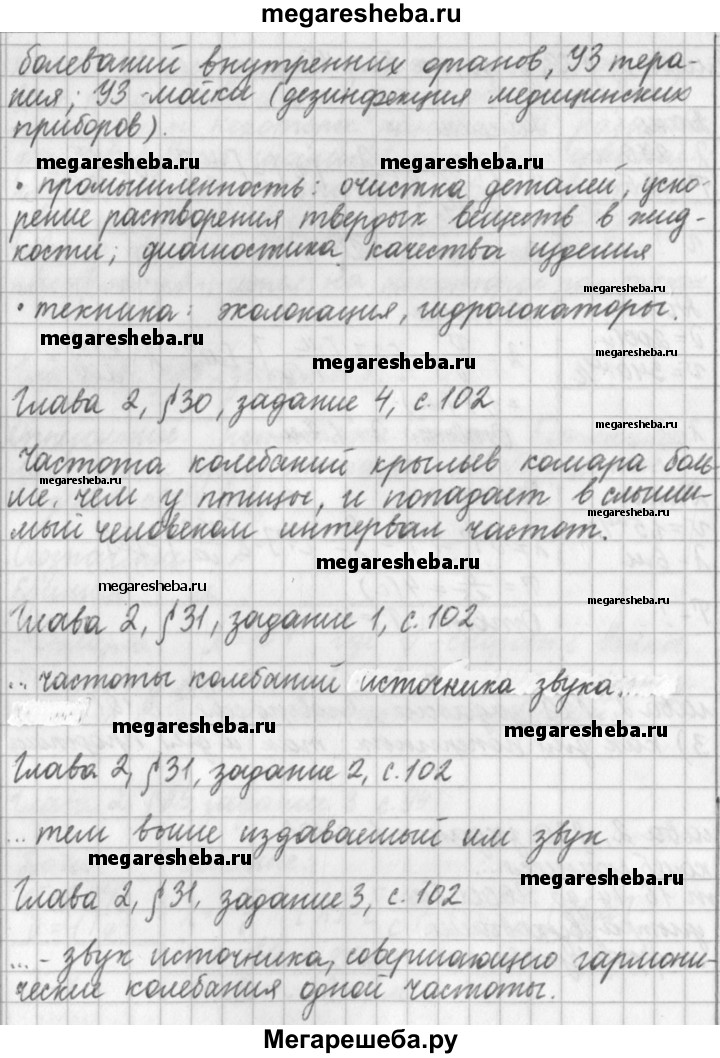 megaresheba.ru
болеваний внутренних органов, УЗ тера-
пия; УЗ-мойка (дезинфекция медицинских
приборов).
megaresheba.ru megaresheba.ru
• промышленность: очистка деталей, уско-
рение растворения твердых веществ в жид-
кости; диагностика качества изделия
megaresheba.ru
• техника: эхолокация, гидролокаторы.
megaresheba.ru
megaresheba.ru megaresheba.ru
Глава 2, §30, задание 4, с.102
megaresheba.ru
Частота колебаний крыльев комара боль-
ше, чем у птицы, и попадает в слыши-
мый человеком интервал частот.
megaresheba.ru megaresheba.ru
megaresheba.ru
megaresheba.ru
Глава 2, §31, задание 1, с.102
... частоты колебаний источника звука.
megaresheba.ru megaresheba.ru
Глава 2, §31, задание 2, с.102
... тем выше издаваемый им звук
megaresheba.ru
megaresheba.ru
Глава 2, §31, задание 3, с.102
... - звук источника, совершающего гармони-
ческие колебания одной частоты.
Мегарешеба.ру